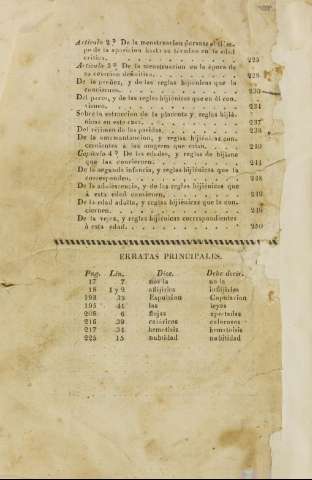 Artículo 2.º De la menstruacion durante el tiem-
po de la aparicion hasta su término en la edad
crítica. 225
Artículo 3.º De la menstruacion en la época de
su cesacion definitiva. 228
De la preñez, y de las reglas higiénicas que la
conciernen. 230
Del parto, y de las reglas higiénicas que á él con-
ciernen. 234
Sobre la estraccion de la placenta y reglas higié-
nicas en este caso. 237
Del régimen de las paridas. 238
De la amamantacion, y reglas higiénicas con-
cernientes á las mugeres que crian. 240
Capítulo 4.º De las edades, y reglas de higiene
que las conciernen. 244
De la segunda infancia, y reglas higiénicas que la
corresponden. 248
De la adolescencia, y de las reglas higiénicas que
á esta edad conciernen. 249
De la edad adulta, y reglas higiénicas que la con-
ciernen. 249
De la vejez, y reglas higiénicas correspondientes
á esta edad. 250
ERRATAS PRINCIPALES.
Pag. Lin. Dice. Debe decir.
17 7 nos la no la
18 1 y 2 aflijirlos infligirlos
193 33 Espulsion Copulacion
195 41 las leyes
208 6 flojas apretadas
216 39 calóricos calorosos
217 34 hemetisis hemotoisis
225 15 nubtidad nubitidad